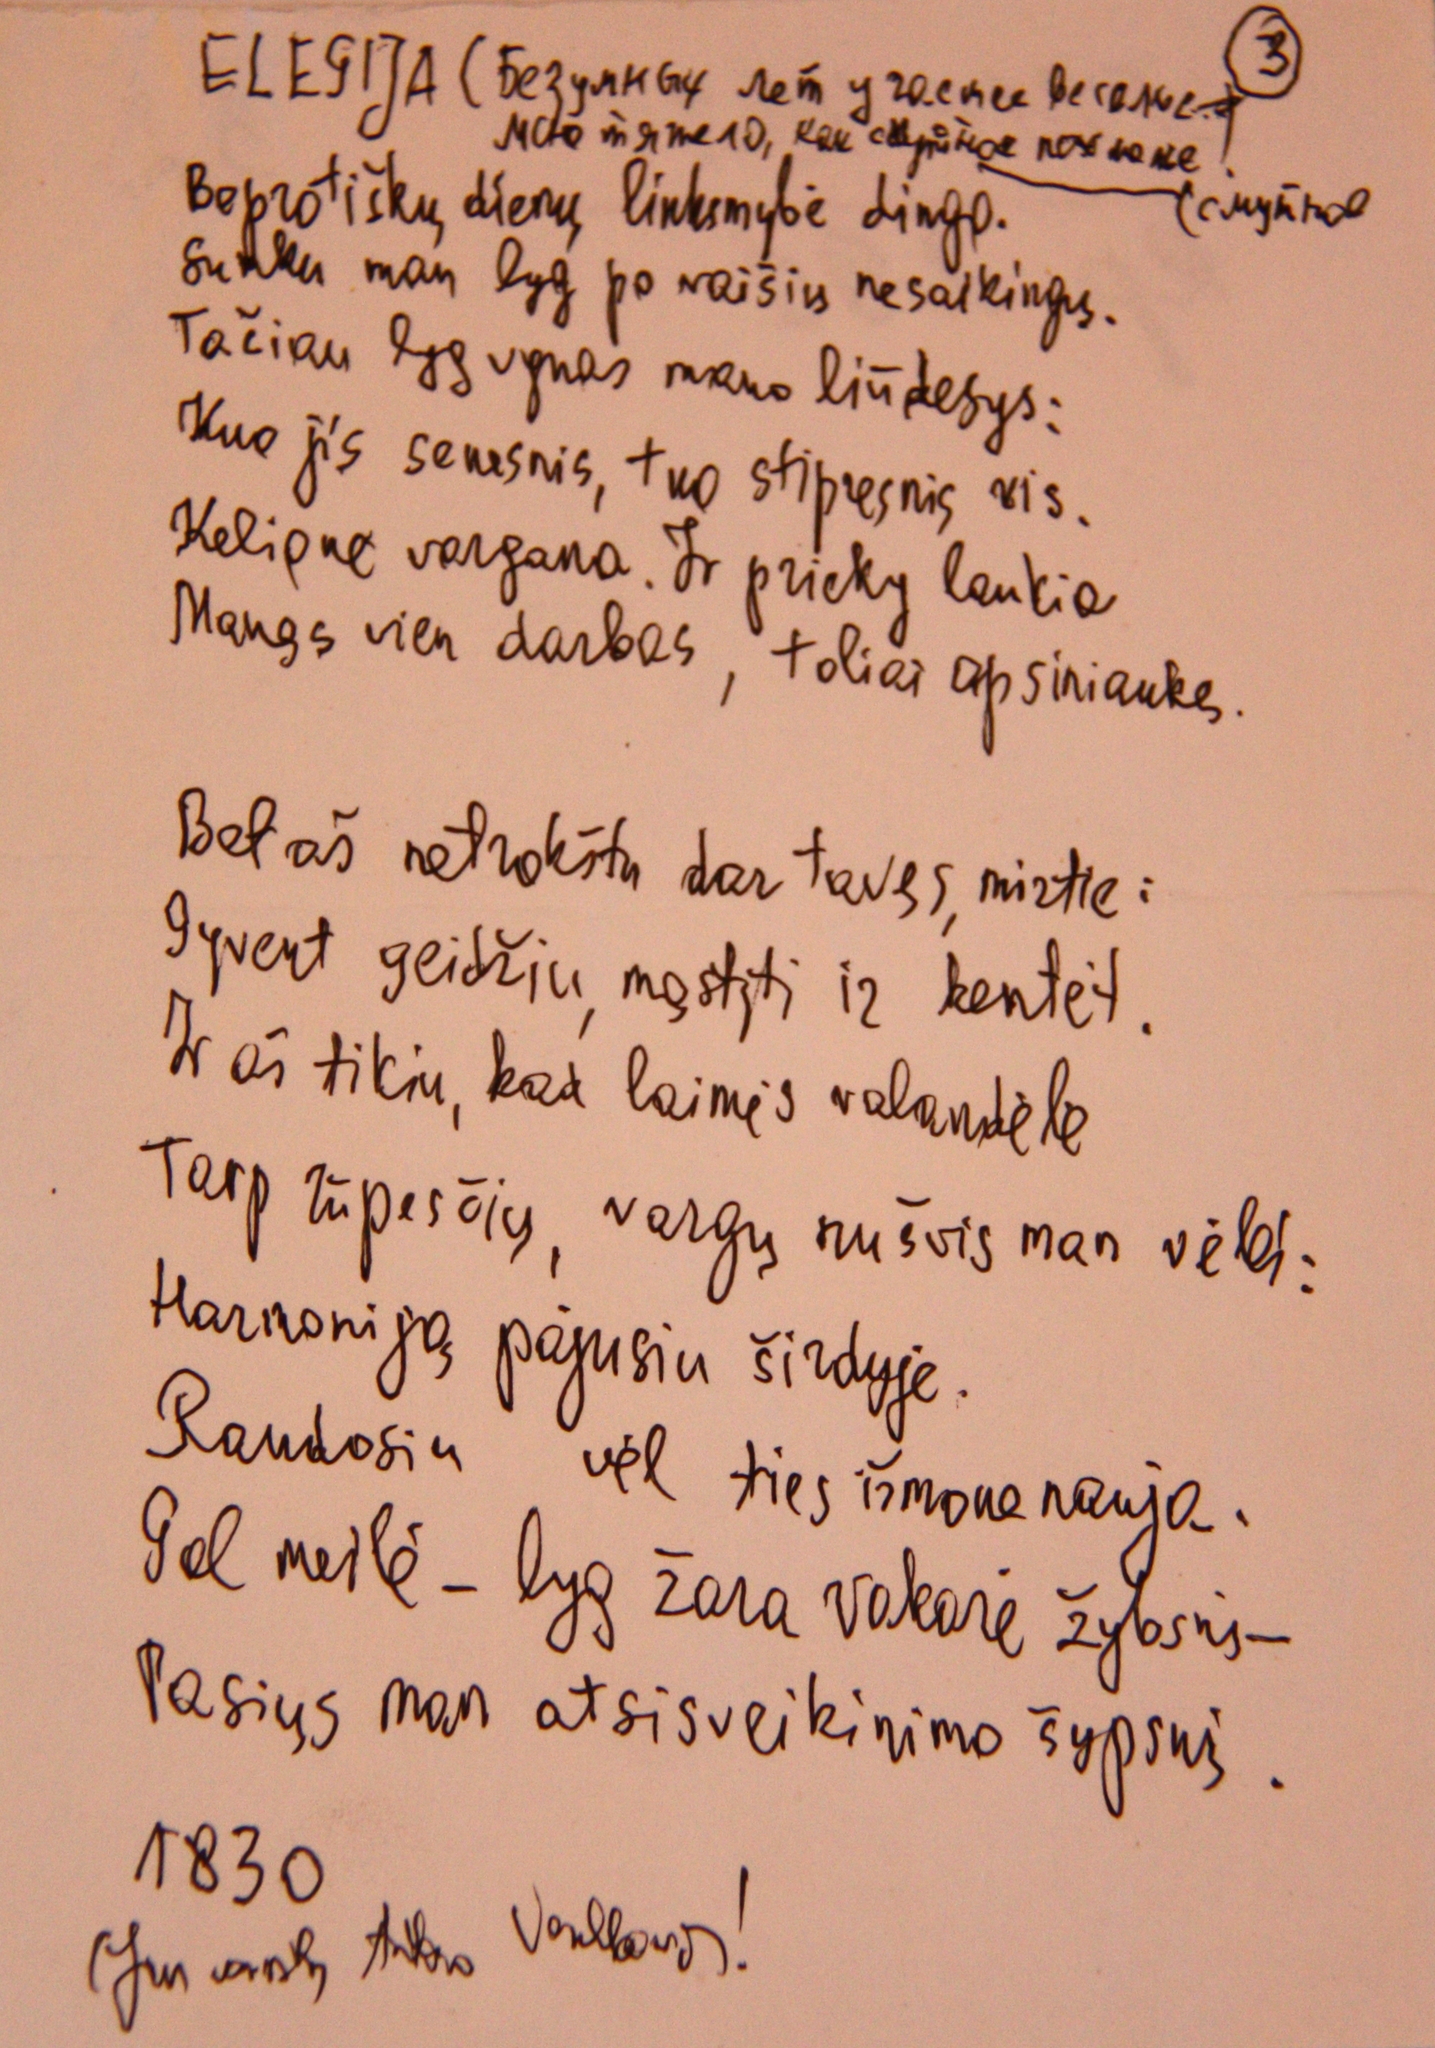 3
ELEGIJA (Безумных лет угасшее веселье
мне тяжело, как смутное похмелье!
(смутное
Beprotiškų dienų linksmybė dingo.
Sunku man lyg po vaišių nesaikingų.
Tačiau lyg vynas mano liūdesys:
Kuo jis senesnis, tuo stipresnis vis.
Kelionė vargana. Ir prieky laukia
Manęs vien darbas, toliai apsiniaukę.
Bet aš netrokštu dar tavęs, mirtie:
Gyvent geidžiu, mąstyti ir kentėt.
Ir aš tikiu, kad laimės valandėlė
Tarp rūpesčių, vargų nušvis man vėlei:
Harmoniją pajusiu širdyje.
Raudosiu vėl ties išmone nauja.
Gal meilė – lyg žara vakarė žybsnį –
Pasiųs man atsisveikinimo šypsnį.
1830